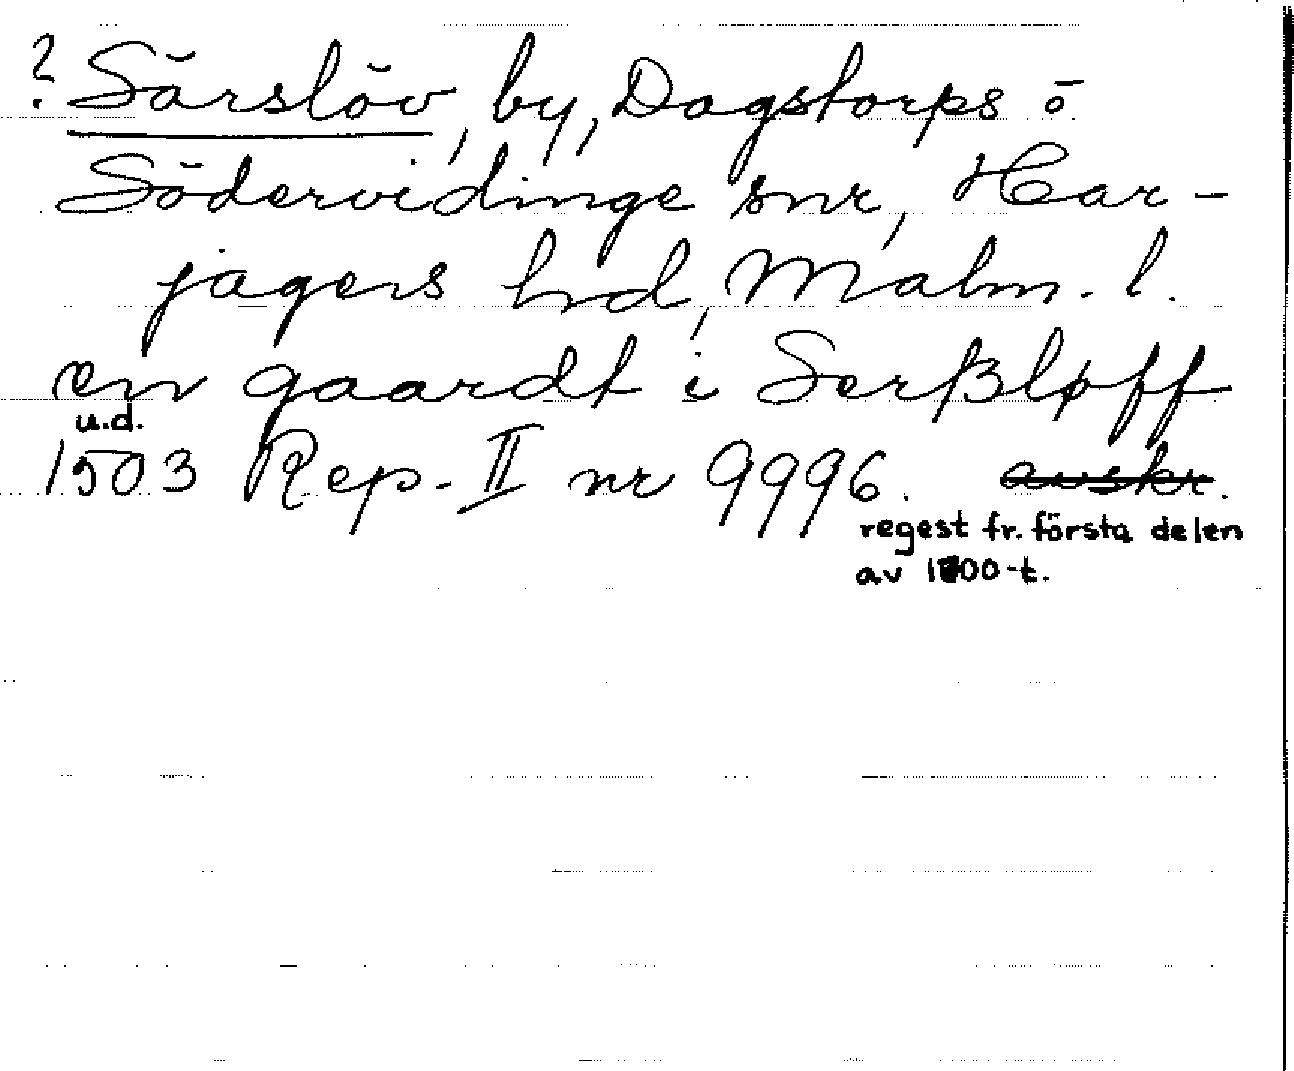 ? Särslöv, by, Dagstorps o
Södervidinge snr, Har-
jagers hd, Malm. l.
en gaardt i Serßløff
u.d.
1503 Rep. II nr 9996. avskr.
regest fr. första delen
av 1700-t.